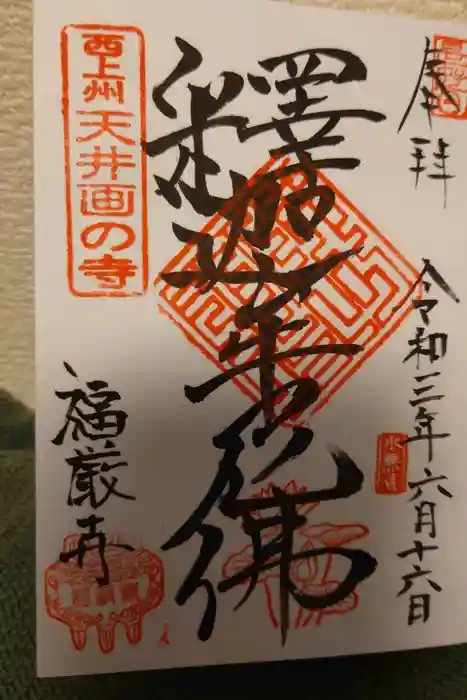 奉拝
令和三年六月十六日
水無月
釋迦牟尼佛
西上州
天井画の寺
福厳寺